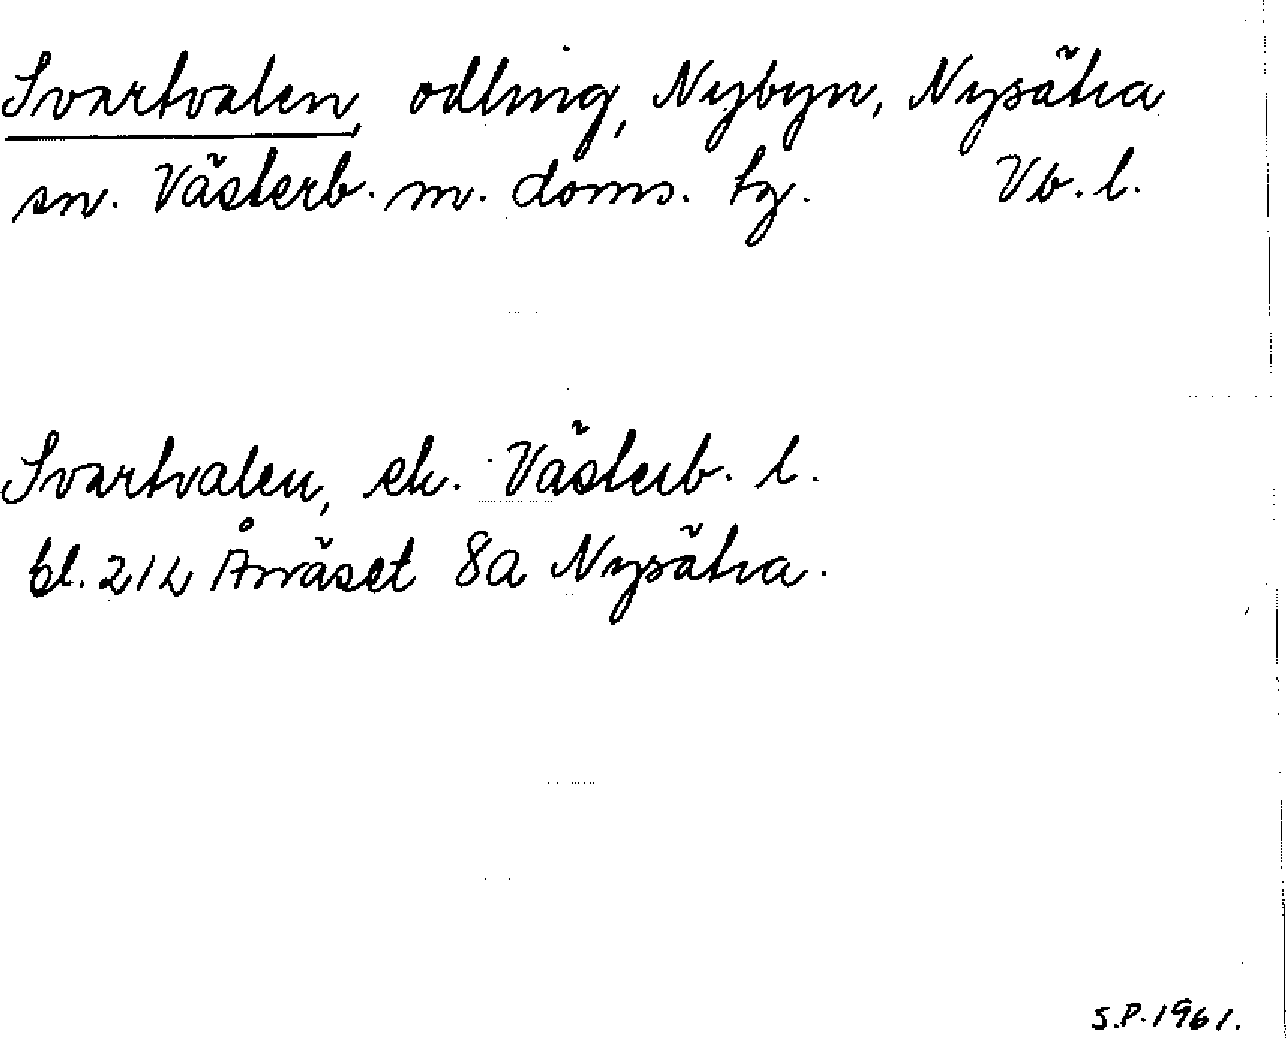 Svartvalen, odling, Nybyn, Nysätra
sn. Västerb. m. doms. tg. Vb. l.
Svartvalen, ek. Västerb. l.
bl. 21L Ånäset 8a Nysätra.
S.P. 1961.